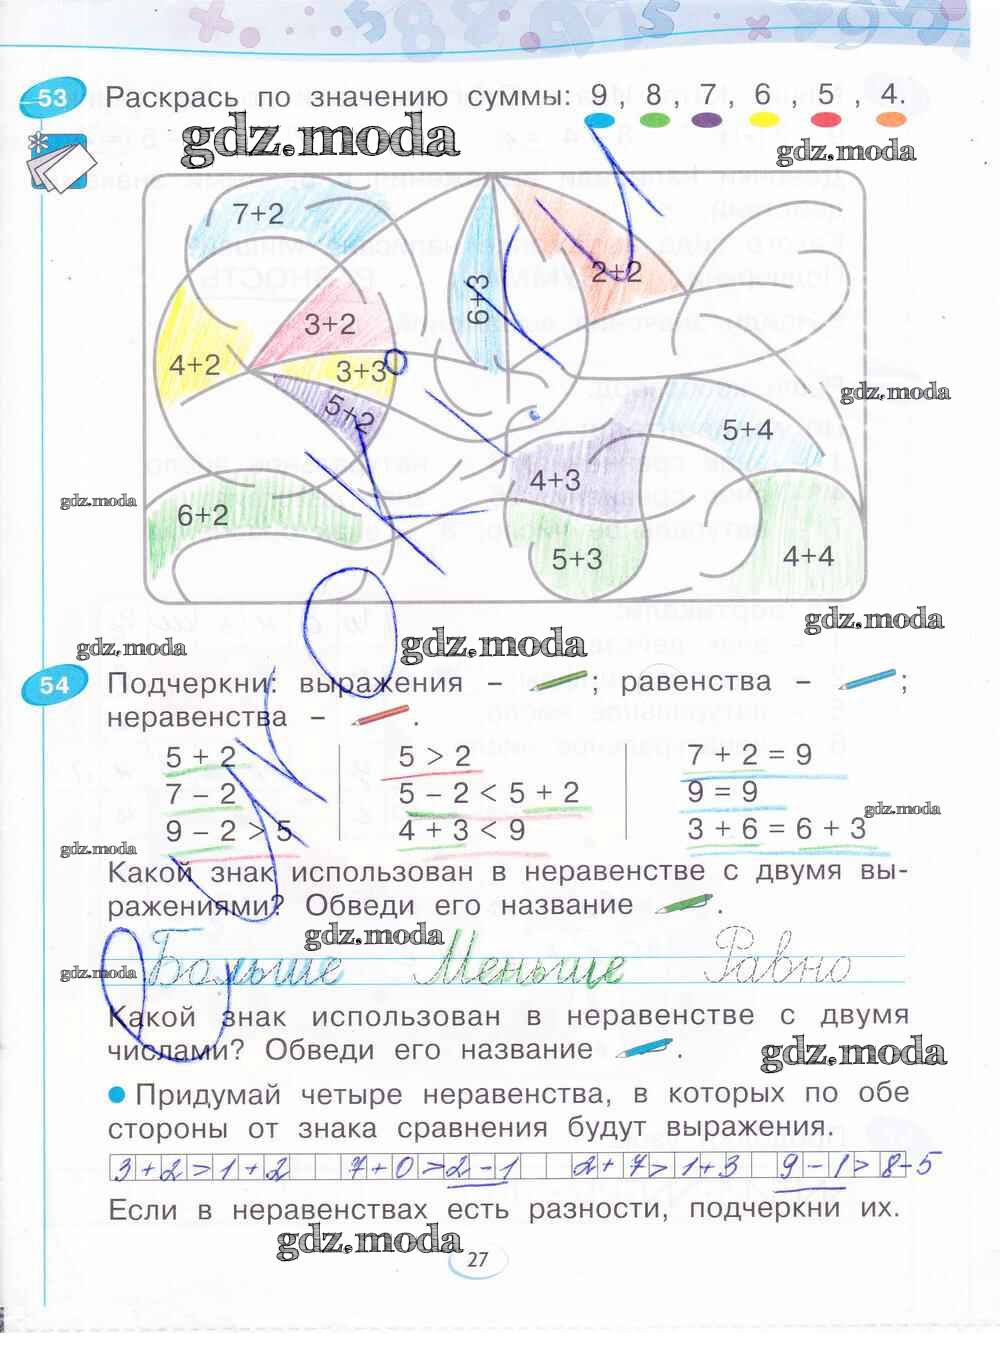 53 Раскрась по значению суммы: 9, 8, 7, 6, 5, 4.
gdz.moda
gdz.moda
7+2
2+2
6+3
3+2
4+2
3+3
5+2
gdz.moda
5+4
4+3
gdz.moda
6+2
5+3
4+4
gdz.moda
gdz.moda
gdz.moda
54 Подчеркни: выражения – ; равенства – ;
неравенства – .
5 + 2 5 > 2 7 + 2 = 9
7 – 2 5 – 2 < 5 + 2 9 = 9
gdz.moda
9 – 2 > 5 4 + 3 < 9 3 + 6 = 6 + 3
gdz.moda
Какой знак использован в неравенстве с двумя вы-
ражениями? Обведи его название .
gdz.moda
Больше Меньше Равно
gdz.moda
Какой знак использован в неравенстве с двумя
числами? Обведи его название .
gdz.moda
Придумай четыре неравенства, в которых по обе
стороны от знака сравнения будут выражения.
3+2>1+2 7+0>2-1 2+7>1+3 9-1>8-5
Если в неравенствах есть разности, подчеркни их.
gdz.moda
27